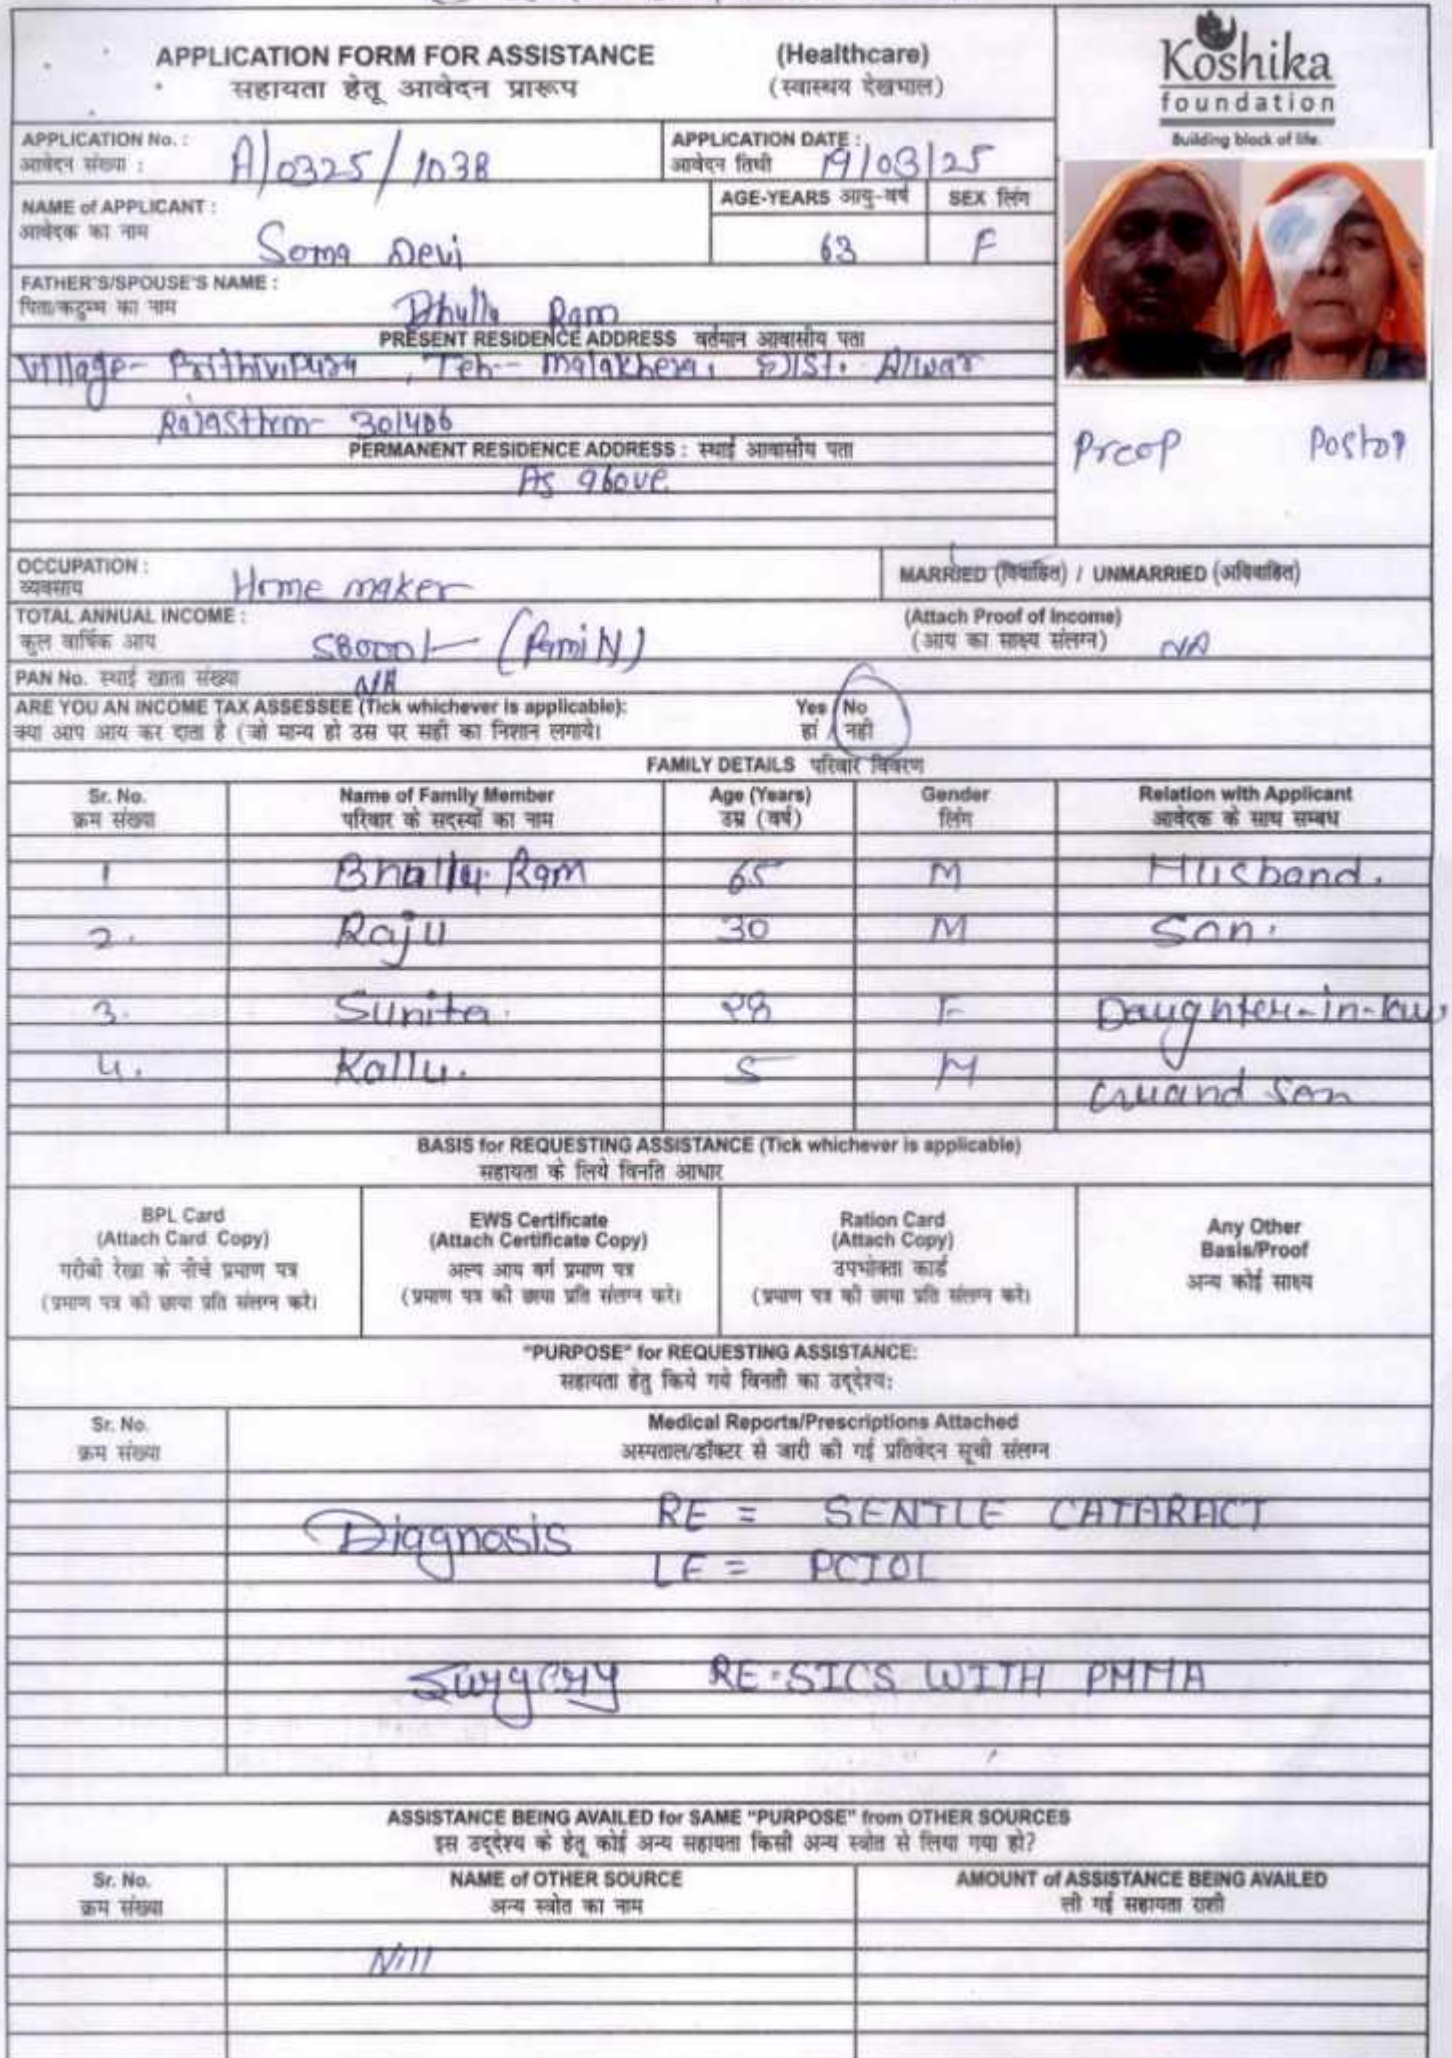 APPLICATION FORM FOR ASSISTANCE (Healthcare)
सहायता हेतू आवेदन प्रारूप (स्वास्थय देखभाल)
Koshika
foundation
Building block of life.
APPLICATION No. : A/0325/1038
आवेदन संख्या :
APPLICATION DATE : 19/03/25
आवेदन तिथी
NAME of APPLICANT : Soma Devi
आवेदक का नाम
AGE-YEARS आयु-वर्ष 63
SEX लिंग F
FATHER'S/SPOUSE'S NAME : Bhulla Ram
पिता/कटुम्भ का नाम
PRESENT RESIDENCE ADDRESS वर्तमान आवासीय पता
Village- Prithvipura, Teh- malakhera, Dist. Alwar
Rajasthan-
PERMANENT RESIDENCE ADDRESS : स्थाई आवासीय पता
As above
Preop Postop
OCCUPATION : Home maker
व्यवसाय
MARRIED (विवाहित) / UNMARRIED (अविवाहित)
TOTAL ANNUAL INCOME : 58000/- (Family)
कुल वार्षिक आय
(Attach Proof of Income)
(आय का साक्ष्य संलग्न) NA
PAN No. स्थाई खाता संख्या N/A
ARE YOU AN INCOME TAX ASSESSEE (Tick whichever is applicable): Yes / No
क्या आप आय कर दाता है (जो मान्य हो उस पर सही का निशान लगाये। हां / नही
FAMILY DETAILS परिवार विवरण
Sr. No. Name of Family Member Age (Years) Gender Relation with Applicant
क्रम संख्या परिवार के सदस्यों का नाम उम्र (वर्ष) लिंग आवेदक के साथ सम्बध
1 Bhally Ram 65 M Husband.
2. Raju 30 M Son.
3. Sunita. 28 F Daughter-in-law.
4. Kallu. 5 M Grand Son
BASIS for REQUESTING ASSISTANCE (Tick whichever is applicable)
सहायता के लिये विनति आधार
BPL Card
(Attach Card Copy)
गरीबी रेखा के नीचे प्रमाण पत्र
(प्रमाण पत्र की छाया प्रति संलग्न करे।
EWS Certificate
(Attach Certificate Copy)
अल्प आय वर्ग प्रमाण पत्र
(प्रमाण पत्र की छाया प्रति संलग्न करे।
Ration Card
(Attach Copy)
उपभोक्ता कार्ड
(प्रमाण पत्र की छाया प्रति संलग्न करे।
Any Other
Basis/Proof
अन्य कोई साक्ष्य
"PURPOSE" for REQUESTING ASSISTANCE:
सहायता हेतु किये गये विनती का उद्देश्य:
Sr. No. Medical Reports/Prescriptions Attached
क्रम संख्या अस्पताल/डॉक्टर से जारी की गई प्रतिवेदन सूची संलग्न
Diagnosis RE = SENILE CATARACT
LE = PCIOL
Surgery RE-SICS WITH PMMA
ASSISTANCE BEING AVAILED for SAME "PURPOSE" from OTHER SOURCES
इस उद्देश्य के हेतू कोई अन्य सहायता किसी अन्य स्त्रोत से लिया गया हो?
Sr. No. NAME of OTHER SOURCE AMOUNT of ASSISTANCE BEING AVAILED
क्रम संख्या अन्य स्त्रोत का नाम ली गई सहायता राशी
Nill